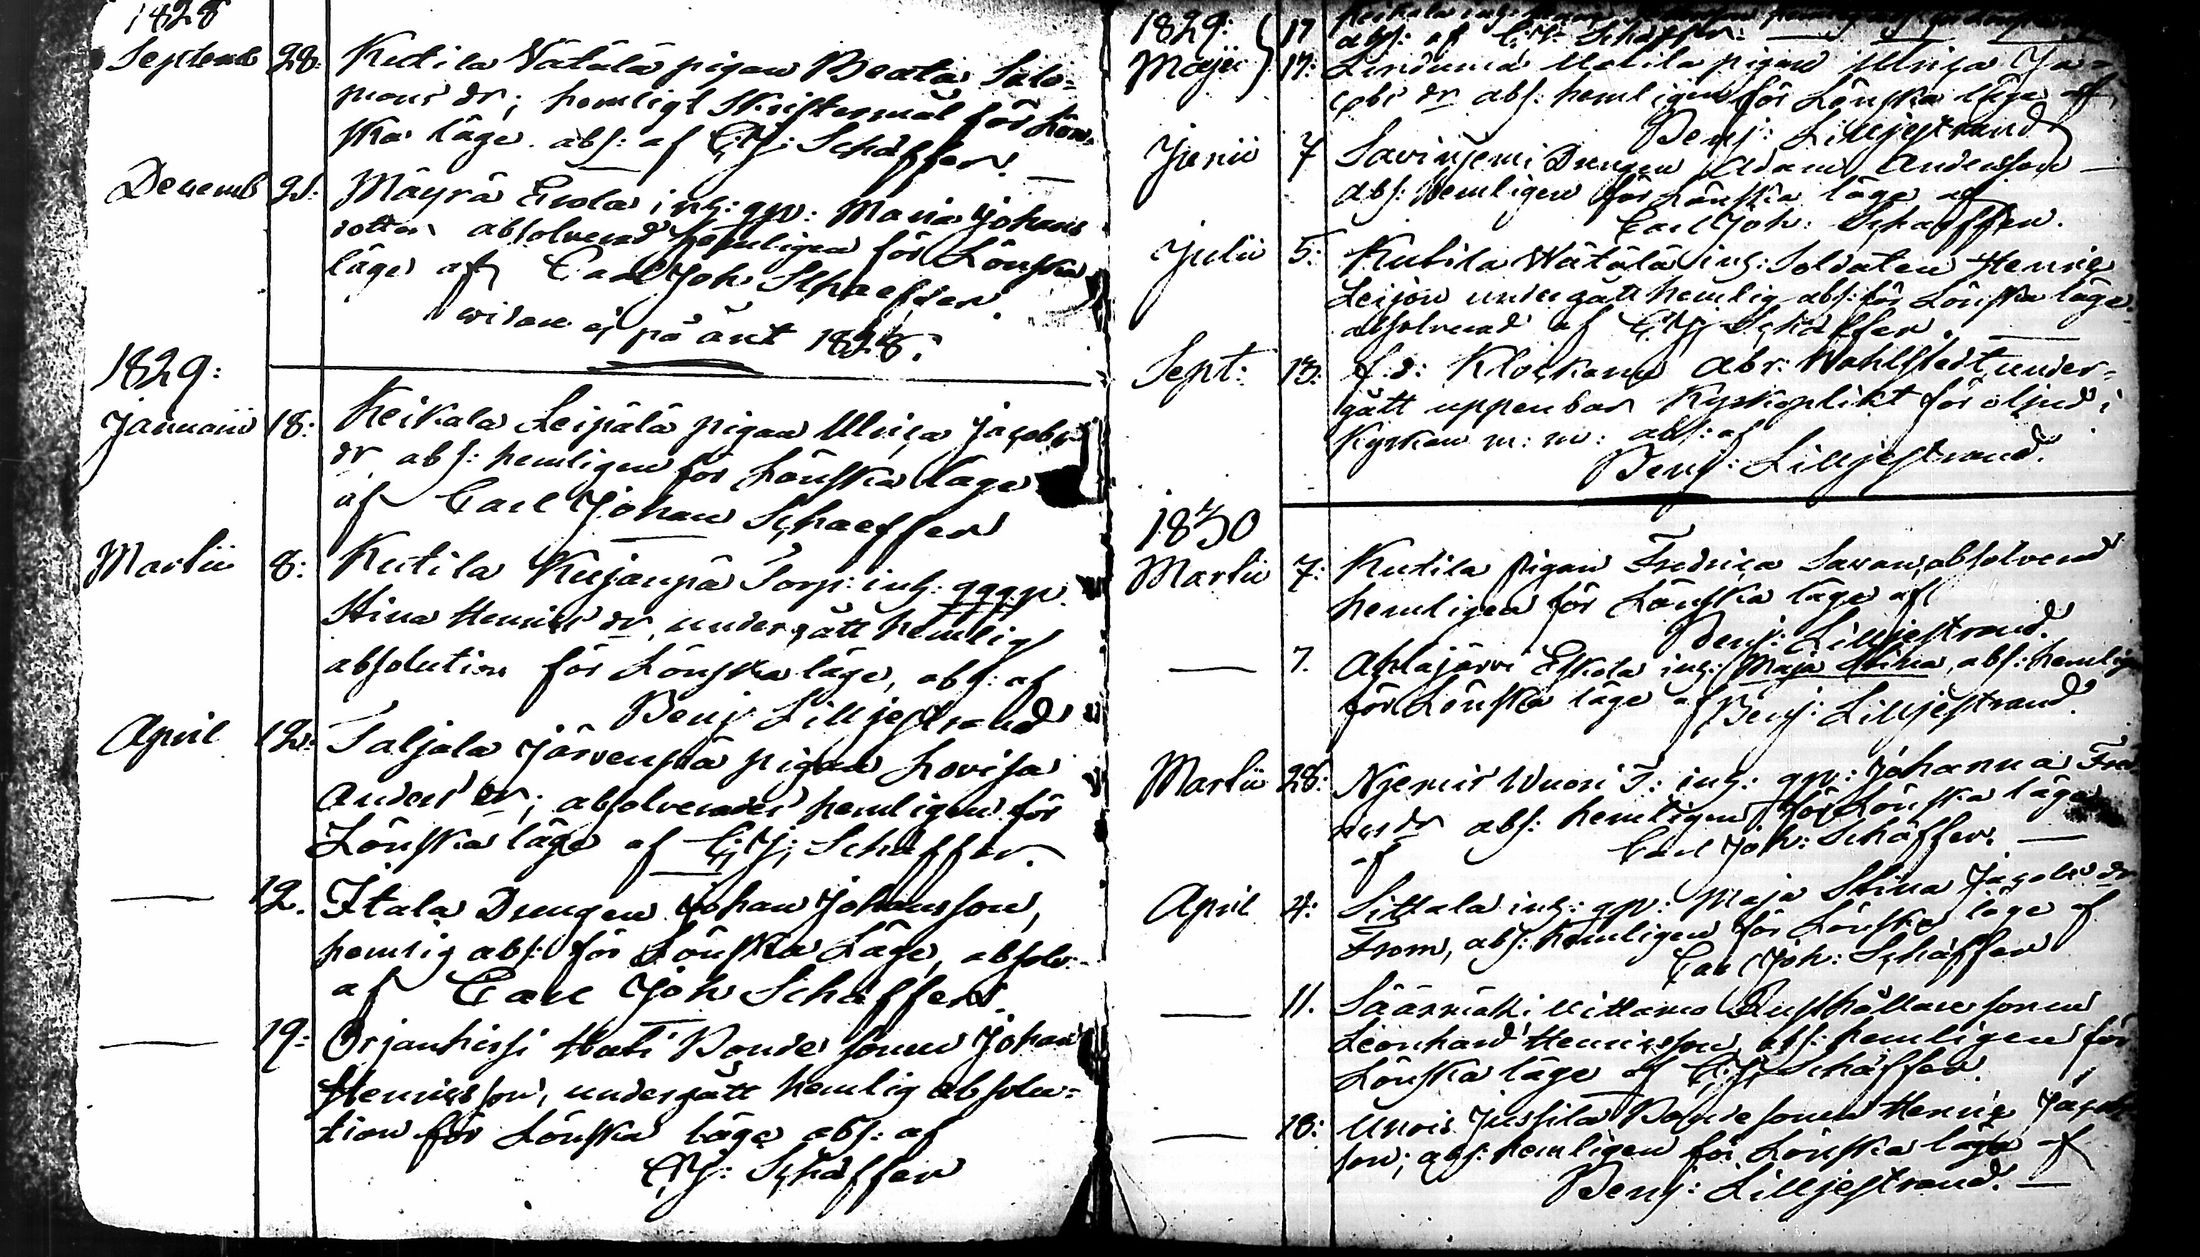 1828
Septemb 28. Kutila Wätälä pigan Beata Salo-
mons dr; hemligt Skriftermål för Lön-
ska läge. abs: af C: J: Schäffer.
Decemb 21. Mäyrä Erola inh: gp: Maria Johans
dotter absolverad hemligen för Lönska
läge af Carl Joh Schaeffer.
vidare ej på året 1828.
1829:
Januarii 18: Keikala Leipälä pigan Ulrica Jacobs
dr abs: hemligen för Lönska läge
af Carl Johan Schaeffer
Martii 8: Kutila Kujanpä Torp: inh:
Stina Henrics dr, undergått hemlig
absolution för Lönska läge, abs: af
Benj Lilljestrand
April 12: Taljala Järvenpä pigan Lovisa
Anders dr; absolverades hemligen för
Lönska läge af C: J: Schäffer.
— 12. Itala Drengen Johan Johansson,
hemlig abs: för Lönska Läge, absolv:
af Carl Joh Schäffer.
— 19: Orjanhirsi Mati Bonde sonen Johan
Henricsson, undergått hemlig absolu-
tion för Lönska läge abs: af
C: J: Schäffer
1829: 17
abs: af C: J: Schäffer:
Majii 17: Uotila pigan Ulrica Ja-
cobs dr abs: hemligen för Lönska läge af
Benj: Lilljestrand
Junii 7 Savinjemi Drengen Adam Andersson
abs: hemligen för Lönska läge af
Carl Joh: Schaeffer.
Julii 5: Kutila Wätälä inh: Soldaten Henric
Leijon undergått hemlig abs: för Lönska läge.
absolverad af C: J: Schäffer.
Sept: 13: f. d: Klockaren Abr: Wahlstedt under-
gått uppenbar Kyrkoplikt för oljud i
Kyrkan m: m: abs: af
Benj: Lilljestrand.
1830
Martii 7: Kutila pigan Fredrica Savan, absolverad
hemligen för Lönska läge af
Benj: Lilljestrand.
— 7. Ahlajärvi Eskola inh: Maja Stina, abs: hemlig
för Lönska läge af Benj: Lilljestrand.
Martii 28: Wuori T: inh: gp: Johanna
dr abs: hemligen för Lönska läge
af Carl Joh: Schäffer.
April 4: Sittala inh: gp: Maja Stina Jacobs dr
From, abs: hemligen för Lönska läge af
Carl Joh: Schäffer
— 11. Sääxmäki Uittamo Rusthållare sonen
Leonhard Henricsson, abs: hemligen för
Lönska läge af C: J: Schäffer.
— 18: Jussila Bonde sonen Henric Jacobs
son; abs: hemligen för Lönska läge af
Benj: Lilljestrand.